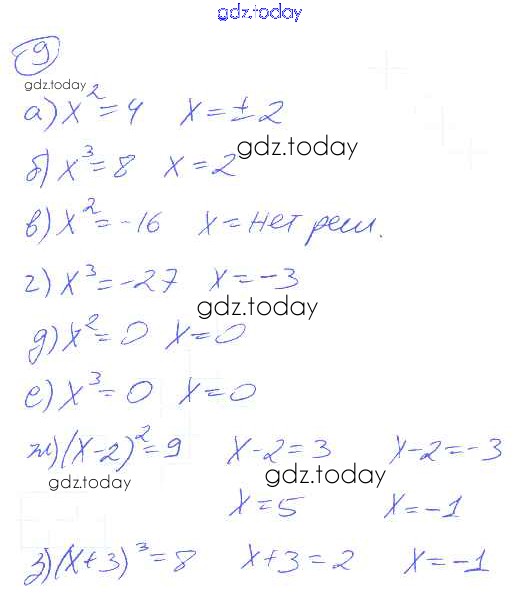 gdz.today
9
gdz.today
а) x² = 4 x = ± 2
gdz.today
б) x³ = 8 x = 2
в) x² = -16 x = нет реш.
г) x³ = -27 x = -3
gdz.today
д) x² = 0 x = 0
е) x³ = 0 x = 0
ж) (x-2)² = 9 x-2 = 3 x-2 = -3
gdz.today gdz.today
x = 5 x = -1
з) (x+3)³ = 8 x+3 = 2 x = -1